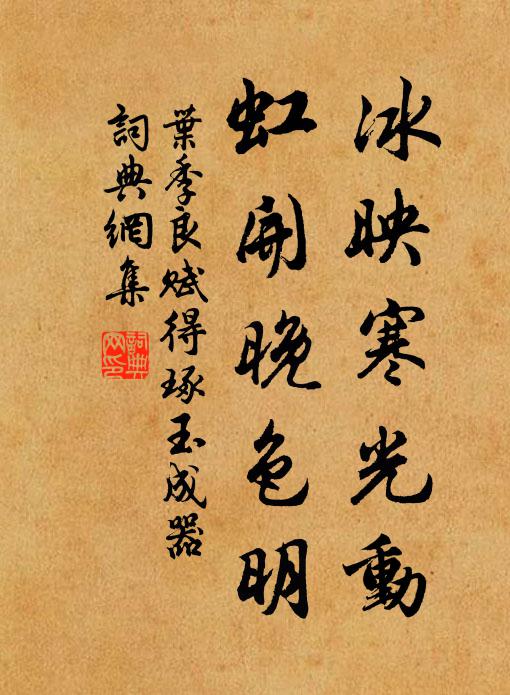 冰映寒光動
虹開晚色明
葉季良賦得琢玉成器
詞典網集
詞典
网印